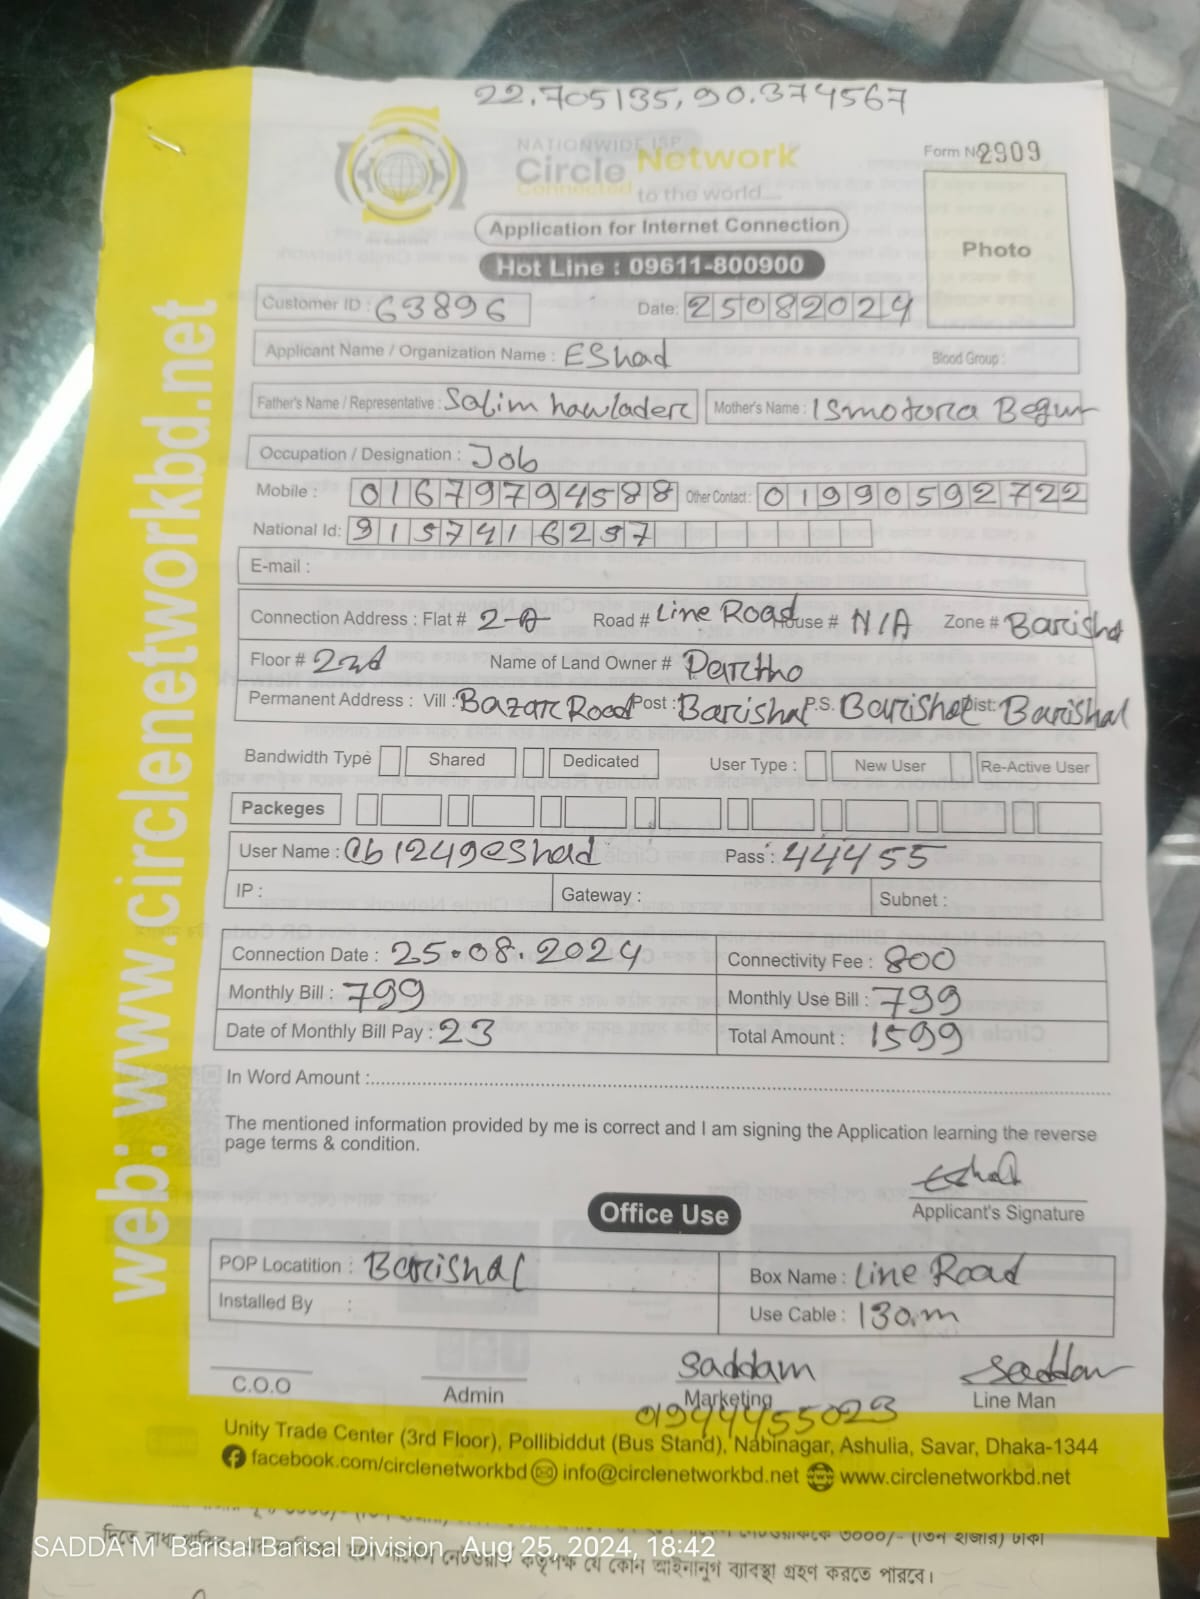 22.705135, 90.374567
NATIONWIDE ISP
Circle Network
Connected to the world....
Form No 2909
Photo
Application for Internet Connection
Hot Line : 09611-800900
Customer ID : 63896 Date: 25082024
Applicant Name / Organization Name : EShad Blood Group :
Father's Name / Representative : Salim howlader Mother's Name : ISmotora Begum
Occupation / Designation : Job
Mobile : 01679794588 Other Contact : 01990592722
National Id: 9157416297
E-mail :
Connection Address : Flat # 2-A Road # Line Road House # N/A Zone # Barishal
Floor # 2nd Name of Land Owner # Partho
Permanent Address : Vill : Bazar Road Post : Barishal P.S. Barishal Dist: Barishal
Bandwidth Type Shared Dedicated User Type : New User Re-Active User
Packeges
User Name : @b1249eshad Pass : 44455
IP : Gateway : Subnet :
Connection Date : 25.08.2024 Connectivity Fee : 800
Monthly Bill : 799 Monthly Use Bill : 799
Date of Monthly Bill Pay : 23 Total Amount : 1599
In Word Amount :
The mentioned information provided by me is correct and I am signing the Application learning the reverse
page terms & condition.
Eshad
Applicant's Signature
Office Use
POP Locatition : Barishal Box Name : Line Road
Installed By : Use Cable : 130.m
Saddam Saddam
C.O.O Admin Marketing Line Man
01944455023
Unity Trade Center (3rd Floor), Pollibiddut (Bus Stand), Nabinagar, Ashulia, Savar, Dhaka-1344
facebook.com/circlenetworkbd info@circlenetworkbd.net www.circlenetworkbd.net
web: www.circlenetworkbd.net
SADDA M Barisal Barisal Division Aug 25, 2024, 18:42
কর্তৃপক্ষ যে কোন আইনানুগ ব্যাবস্থা গ্রহণ করতে পারবে।